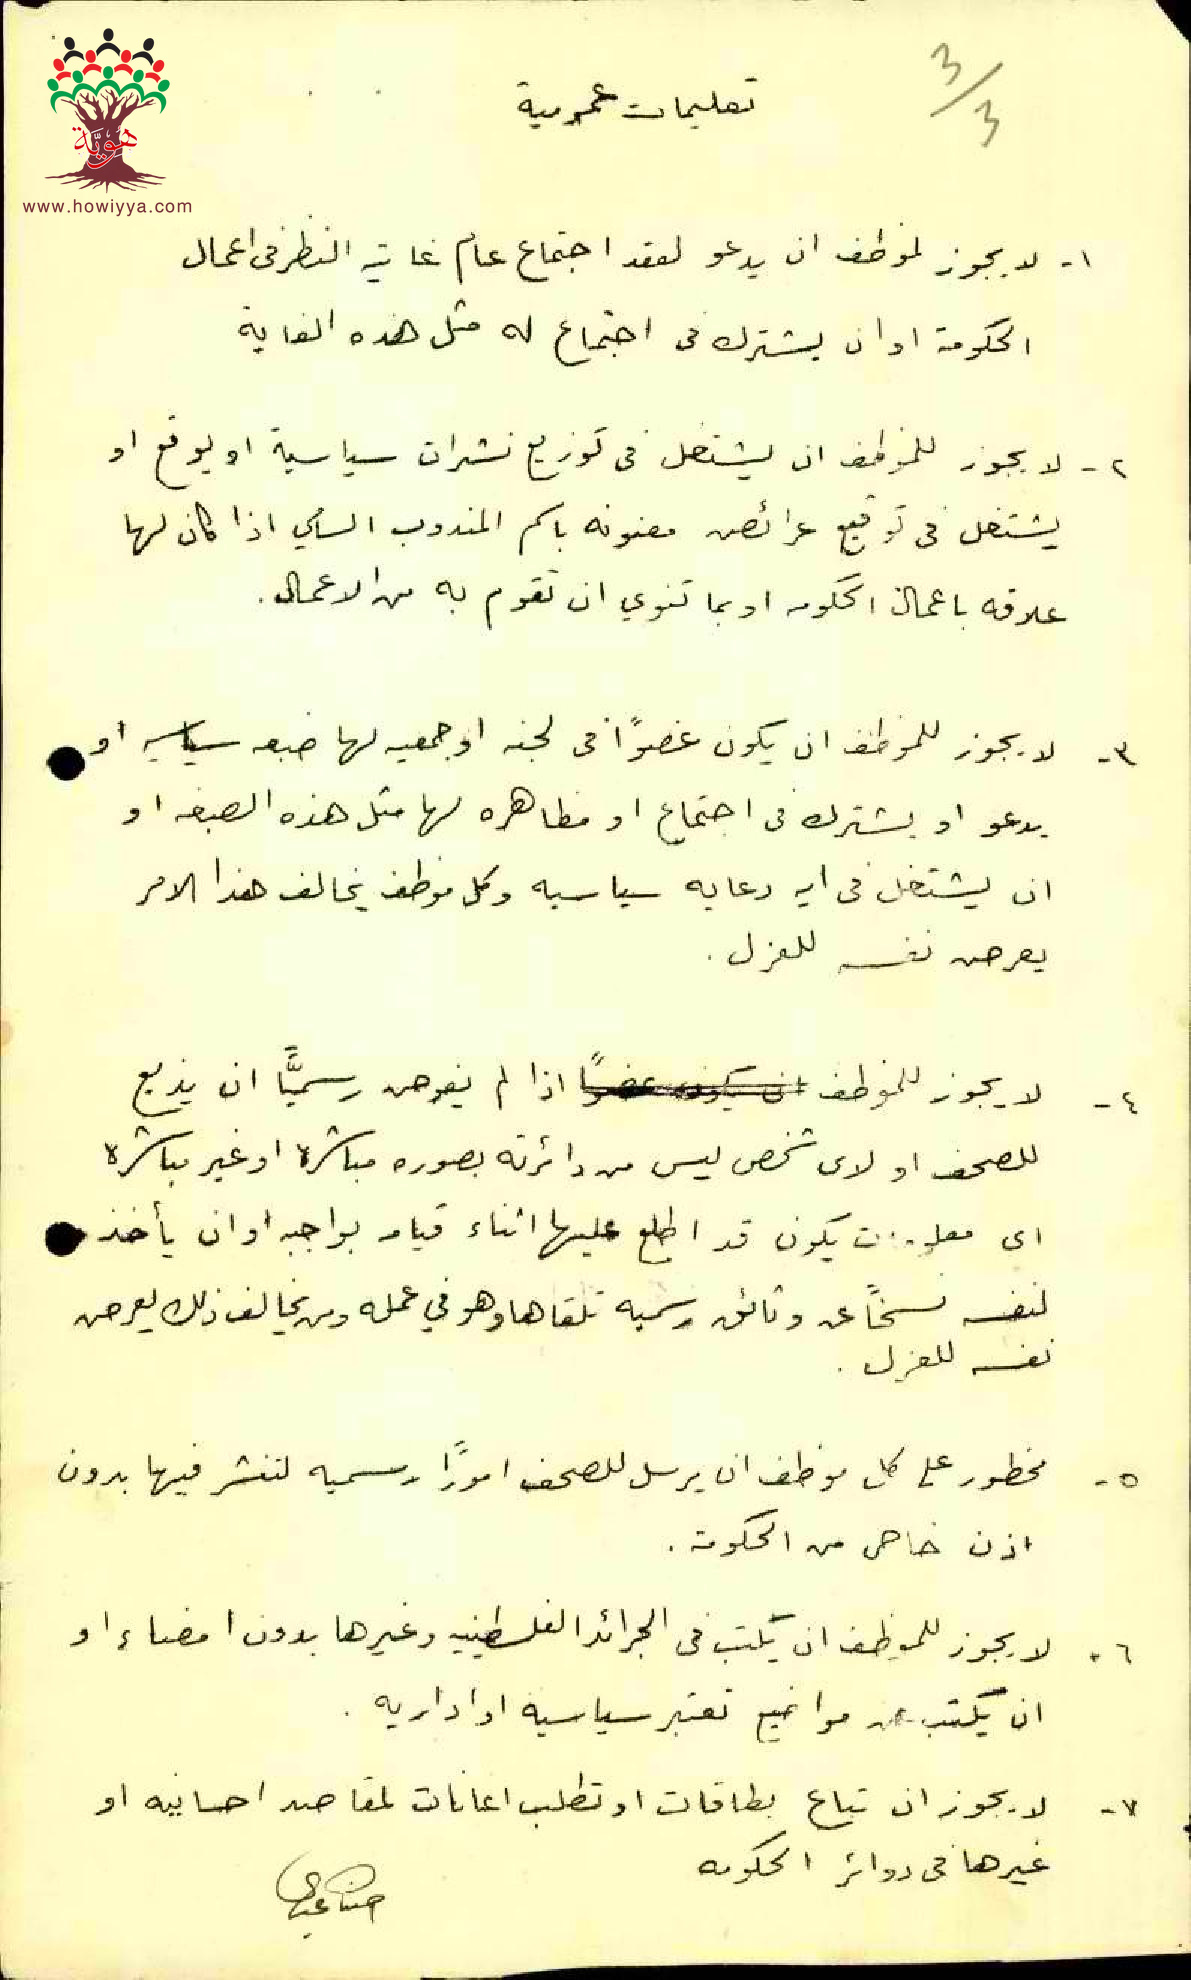 هويّة
www.howiyya.com
3/3
تعليمات عمومية
١- لا يجوز لموظف ان يدعو لعقد اجتماع عام غايته النظر في اعمال
الحكومة او ان يشترك في اجتماع له مثل هذه الغاية
٢- لا يجوز للموظف ان يشتغل في توزيع نشرات سياسية او يوقع او
يشتغل في توقيع عرائض معنونه باسم المندوب السامي اذا كان لها
علاقه باعمال الحكومه او بما تنوي ان تقوم به من الاعمال .
٣- لا يجوز للموظف ان يكون عضوًا في لجنه او جمعيه لها صبغه سياسيه او
يدعو او يشترك في اجتماع او مظاهره لها مثل هذه الصبغه او
ان يشتغل في ايه دعايه سياسيه وكل موظف يخالف هذا الامر
يعرض نفسه للعزل .
٤- لا يجوز للموظف ان يكون عضوًا اذا لم يفوض رسميًّا ان يذيع
للصحف او لاى شخص ليس من دائرته بصوره مباشرة او غير مباشرة
اى معلومات يكون قد اطلع عليها اثناء قيامه بواجبه او ان يأخذ
لنفسه نسخًا عن وثائق رسميه تلقاها وهو في عمله ومن يخالف ذلك يعرض
نفسه للعزل .
٥- محظور على كل موظف ان يرسل للصحف امورًا رسميه لتنشر فيها بدون
اذن خاص من الحكومة .
٦- لا يجوز للموظف ان يكتب في الجرائد الفلسطينيه وغيرها بدون امضاء او
ان يكتب عن مواضيع تعتبر سياسية او اداريه .
٧- لا يجوز ان تباع بطاقات او تطلب اعانات لمقاصد احسانيه او
غيرها في دوائر الحكومه